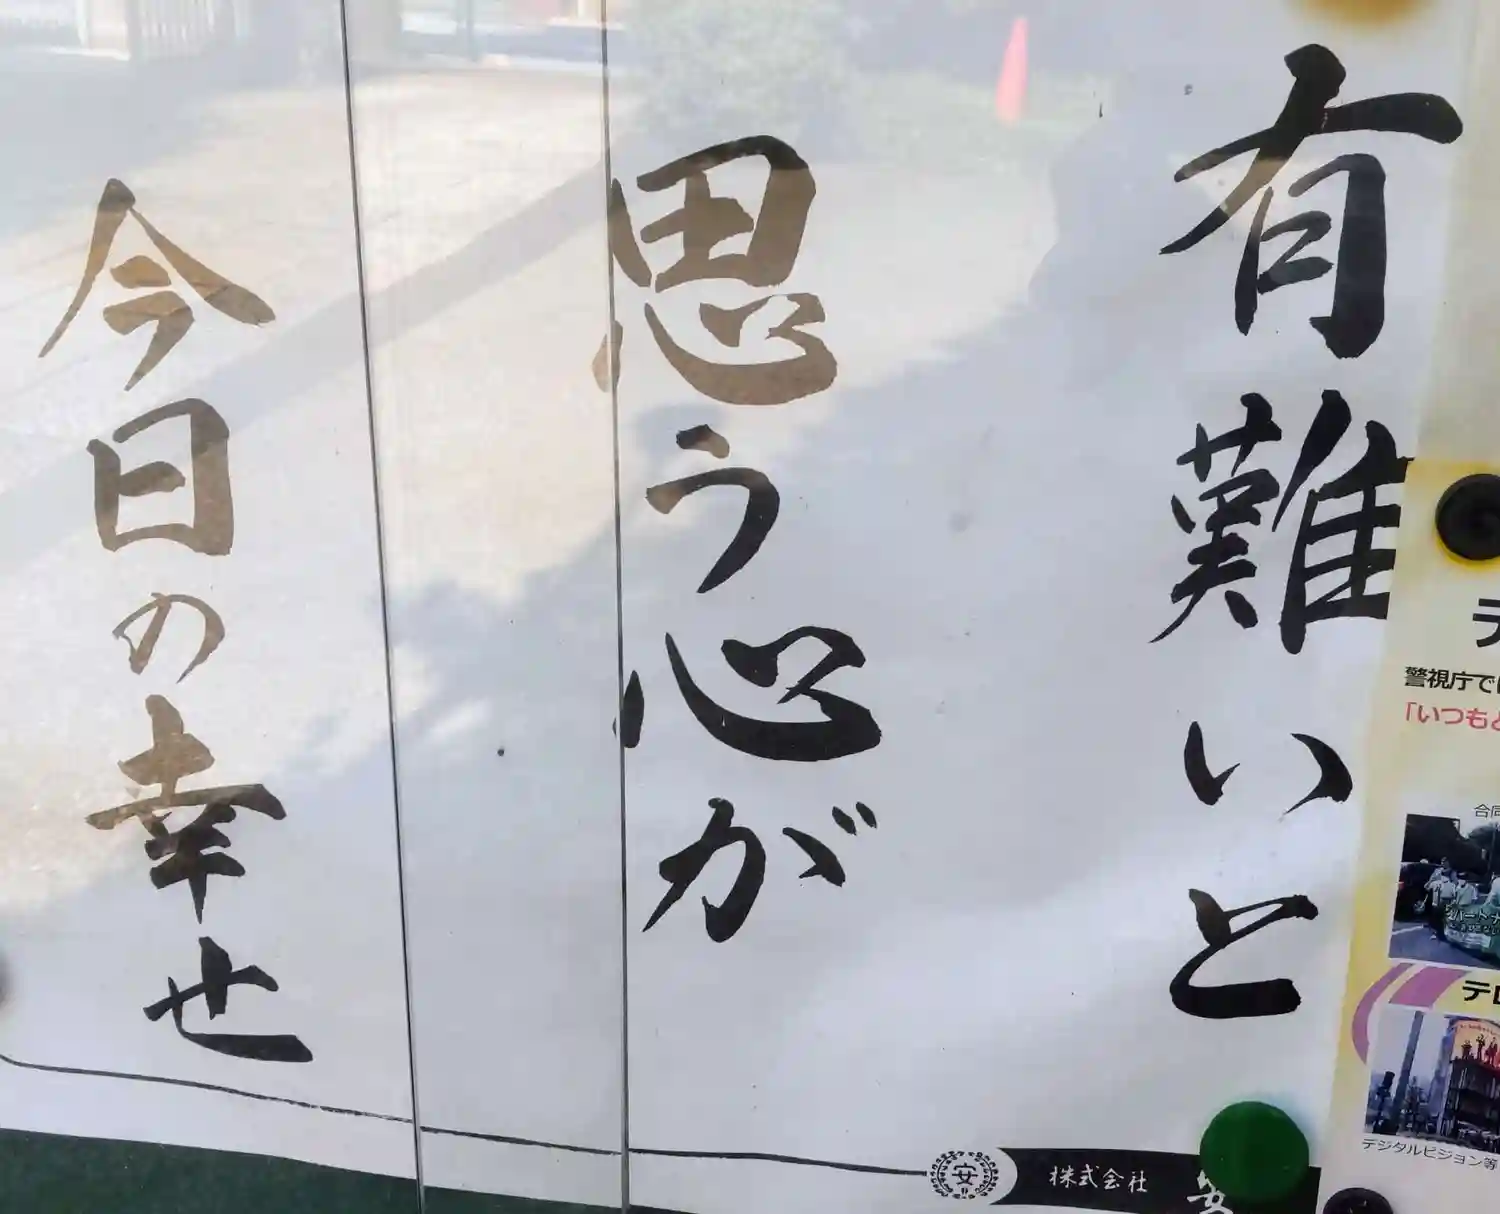 有難いと
思う心が
今日の幸せ
安
株式会社
警視庁で
「いつも
合同
テロ
デジタルビジョン等